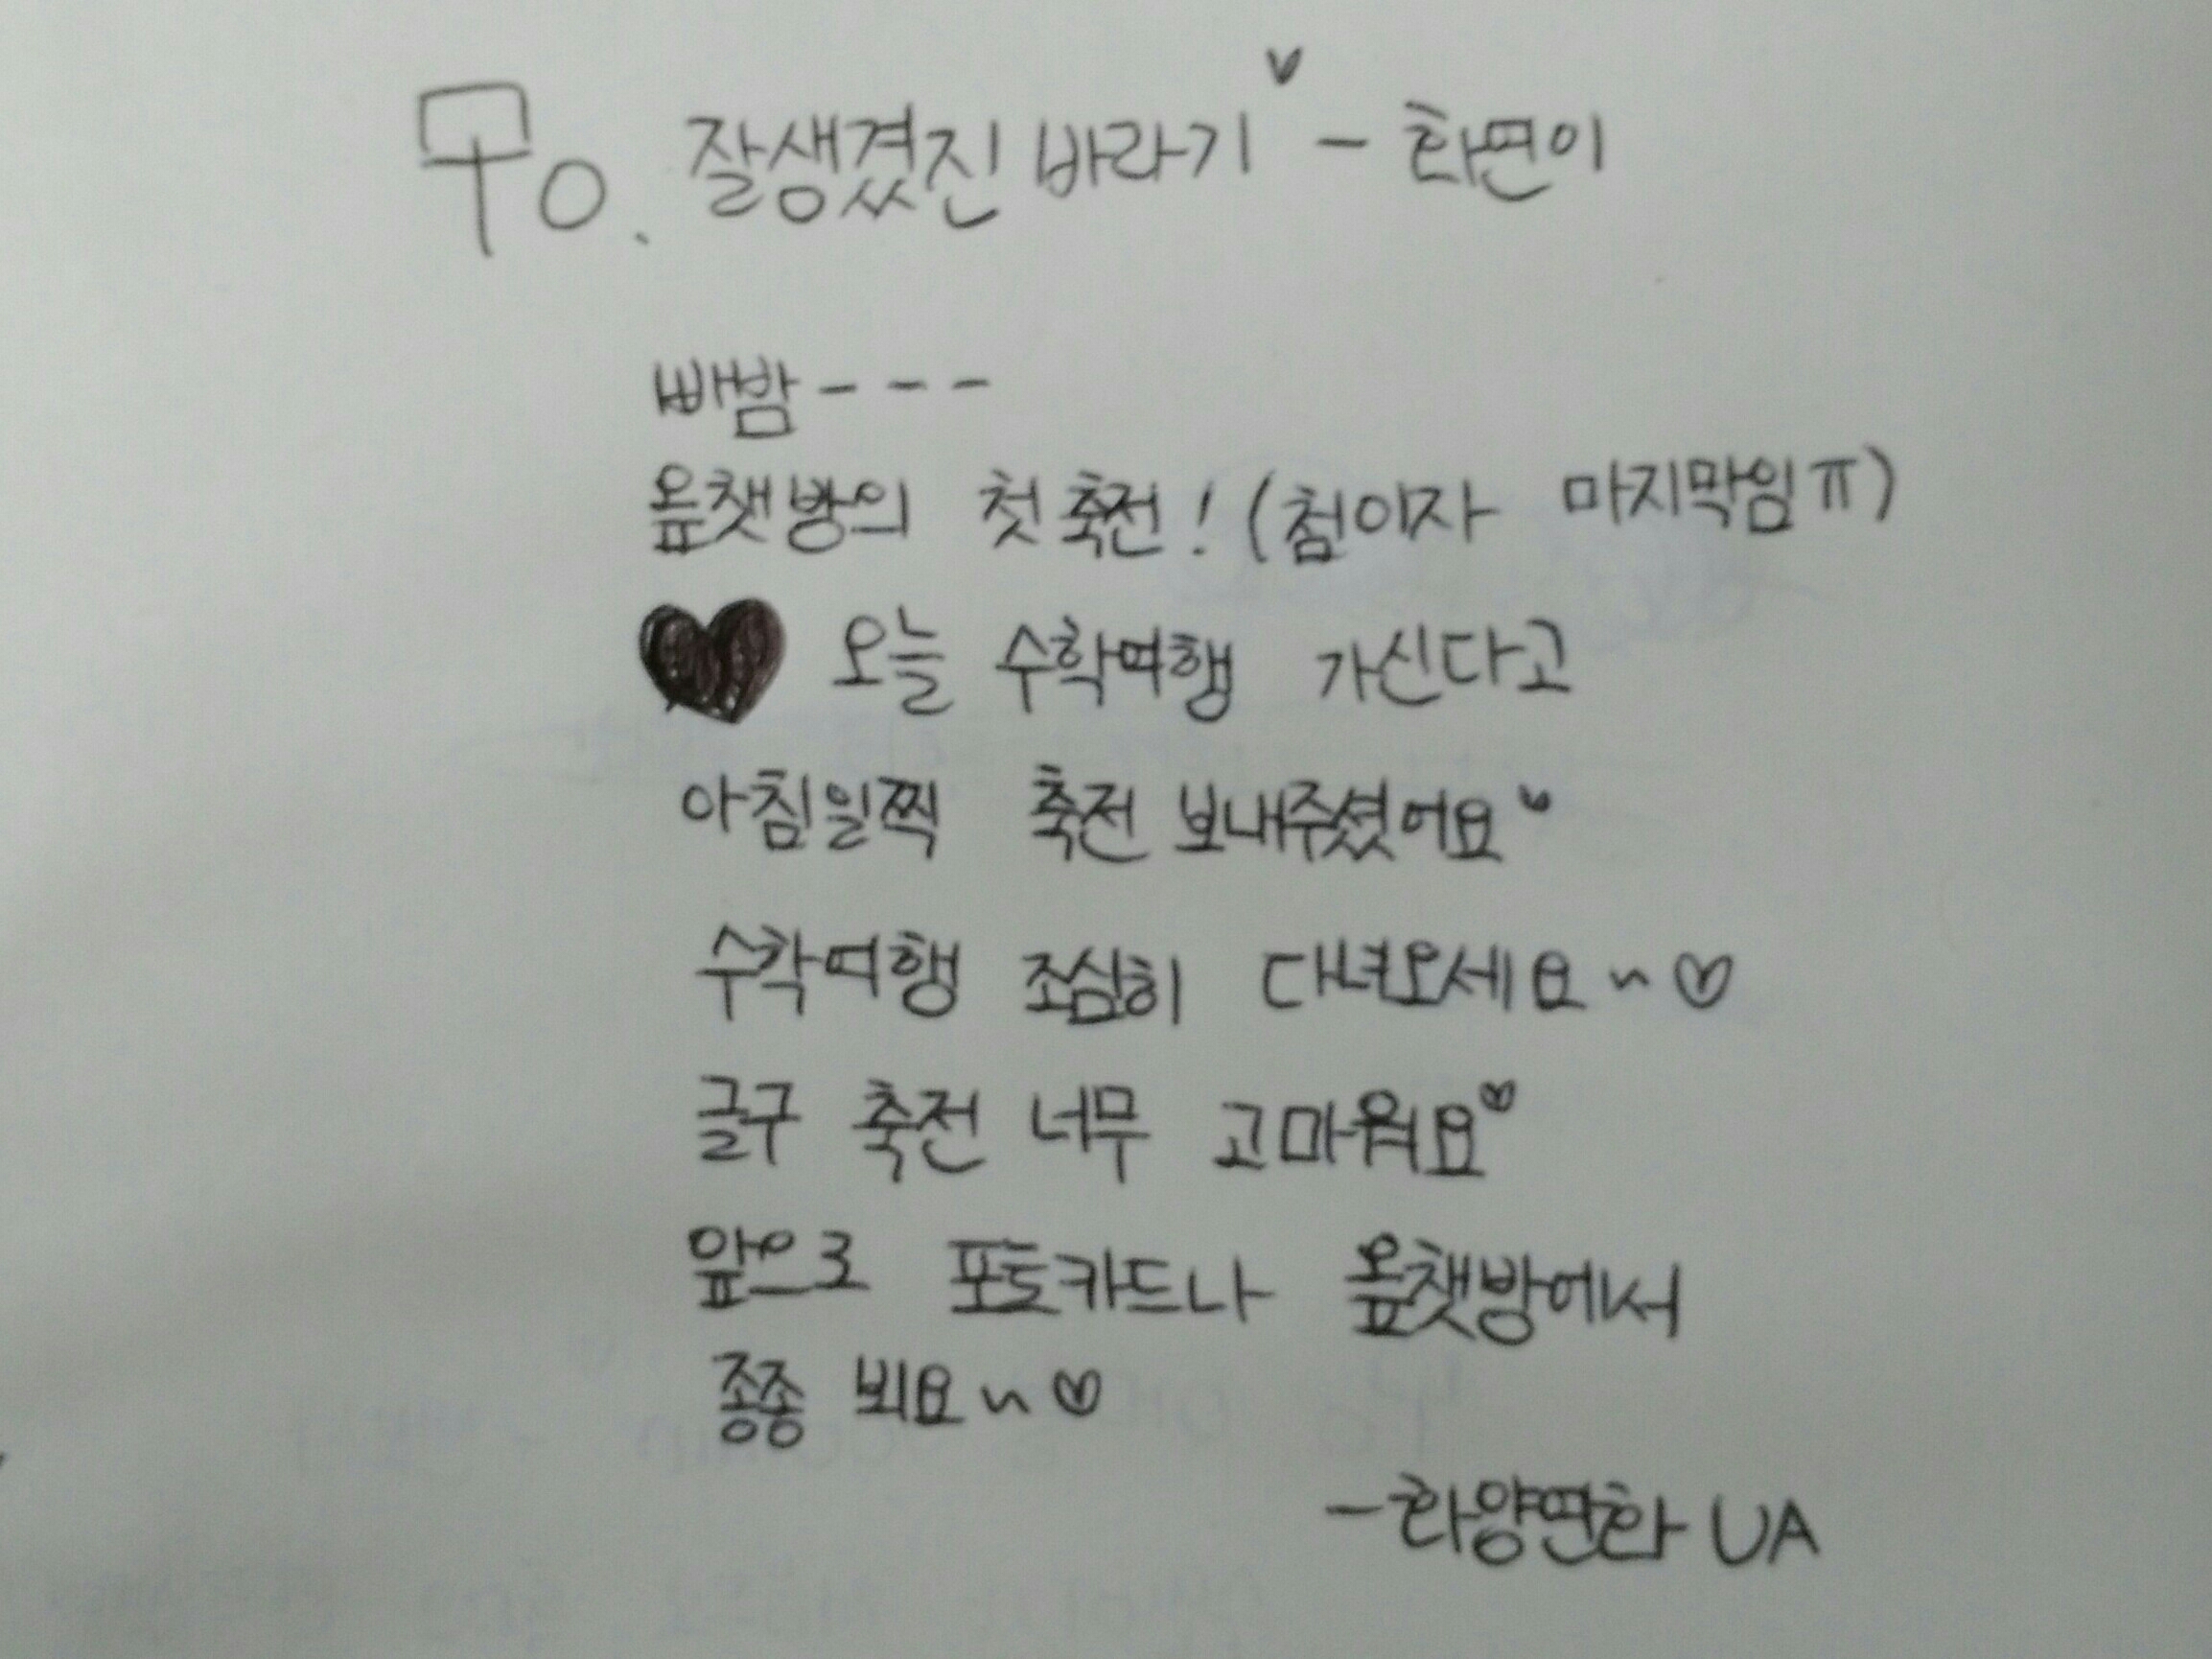 To. 잘생겼진 바라기♥ - 화연이
빠밤 - - -
옾챗방의 첫 축전! (첨이자 마지막임ㅠ)
♥ 오늘 수학여행 가신다고
아침일찍 축전 보내주셨어요♥
수학여행 조심히 다녀오세요~♡
글구 축전 너무 고마워요♡
앞으로 포토카드나 옾챗방에서
종종 뵈요~♡
-화양연화 UA